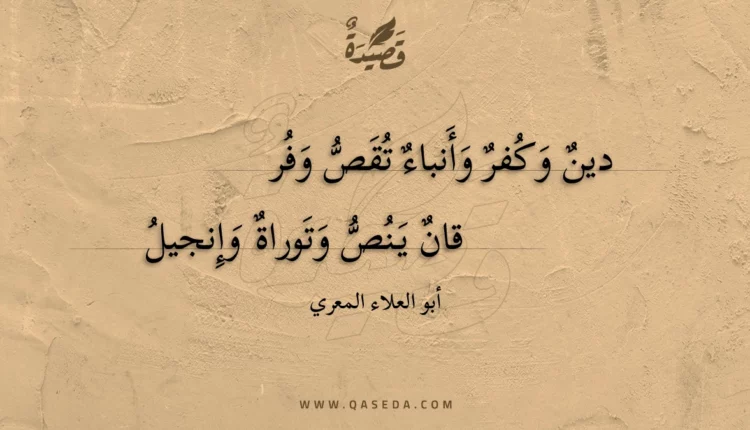 قَصِيْدَةٌ
دينٌ وَكُفرٌ وَأَنباءٌ تُقَصُّ وَفُر
قانٌ يَنُصُّ وَتَوراةٌ وَإِنجيلُ
أبو العلاء المعري
WWW.QASEDA.COM